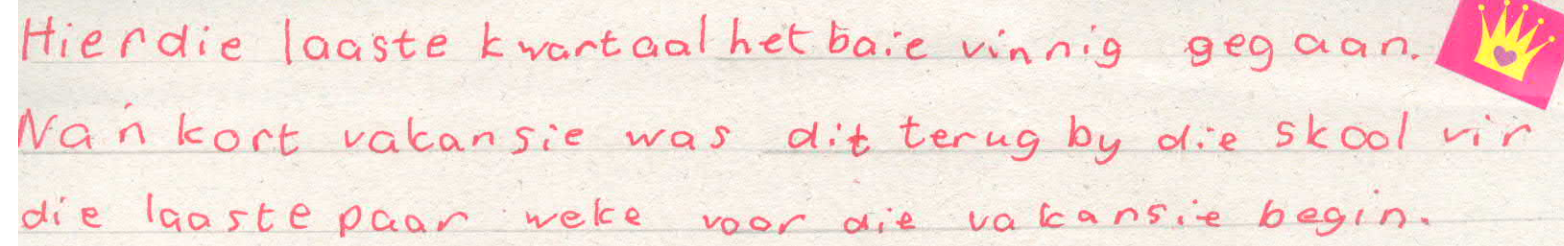 Hierdie laaste kwartaal het baie vinnig gegaan.
Na 'n kort vakansie was dit terug by die skool vir
die laaste paar weke voor die vakansie begin.